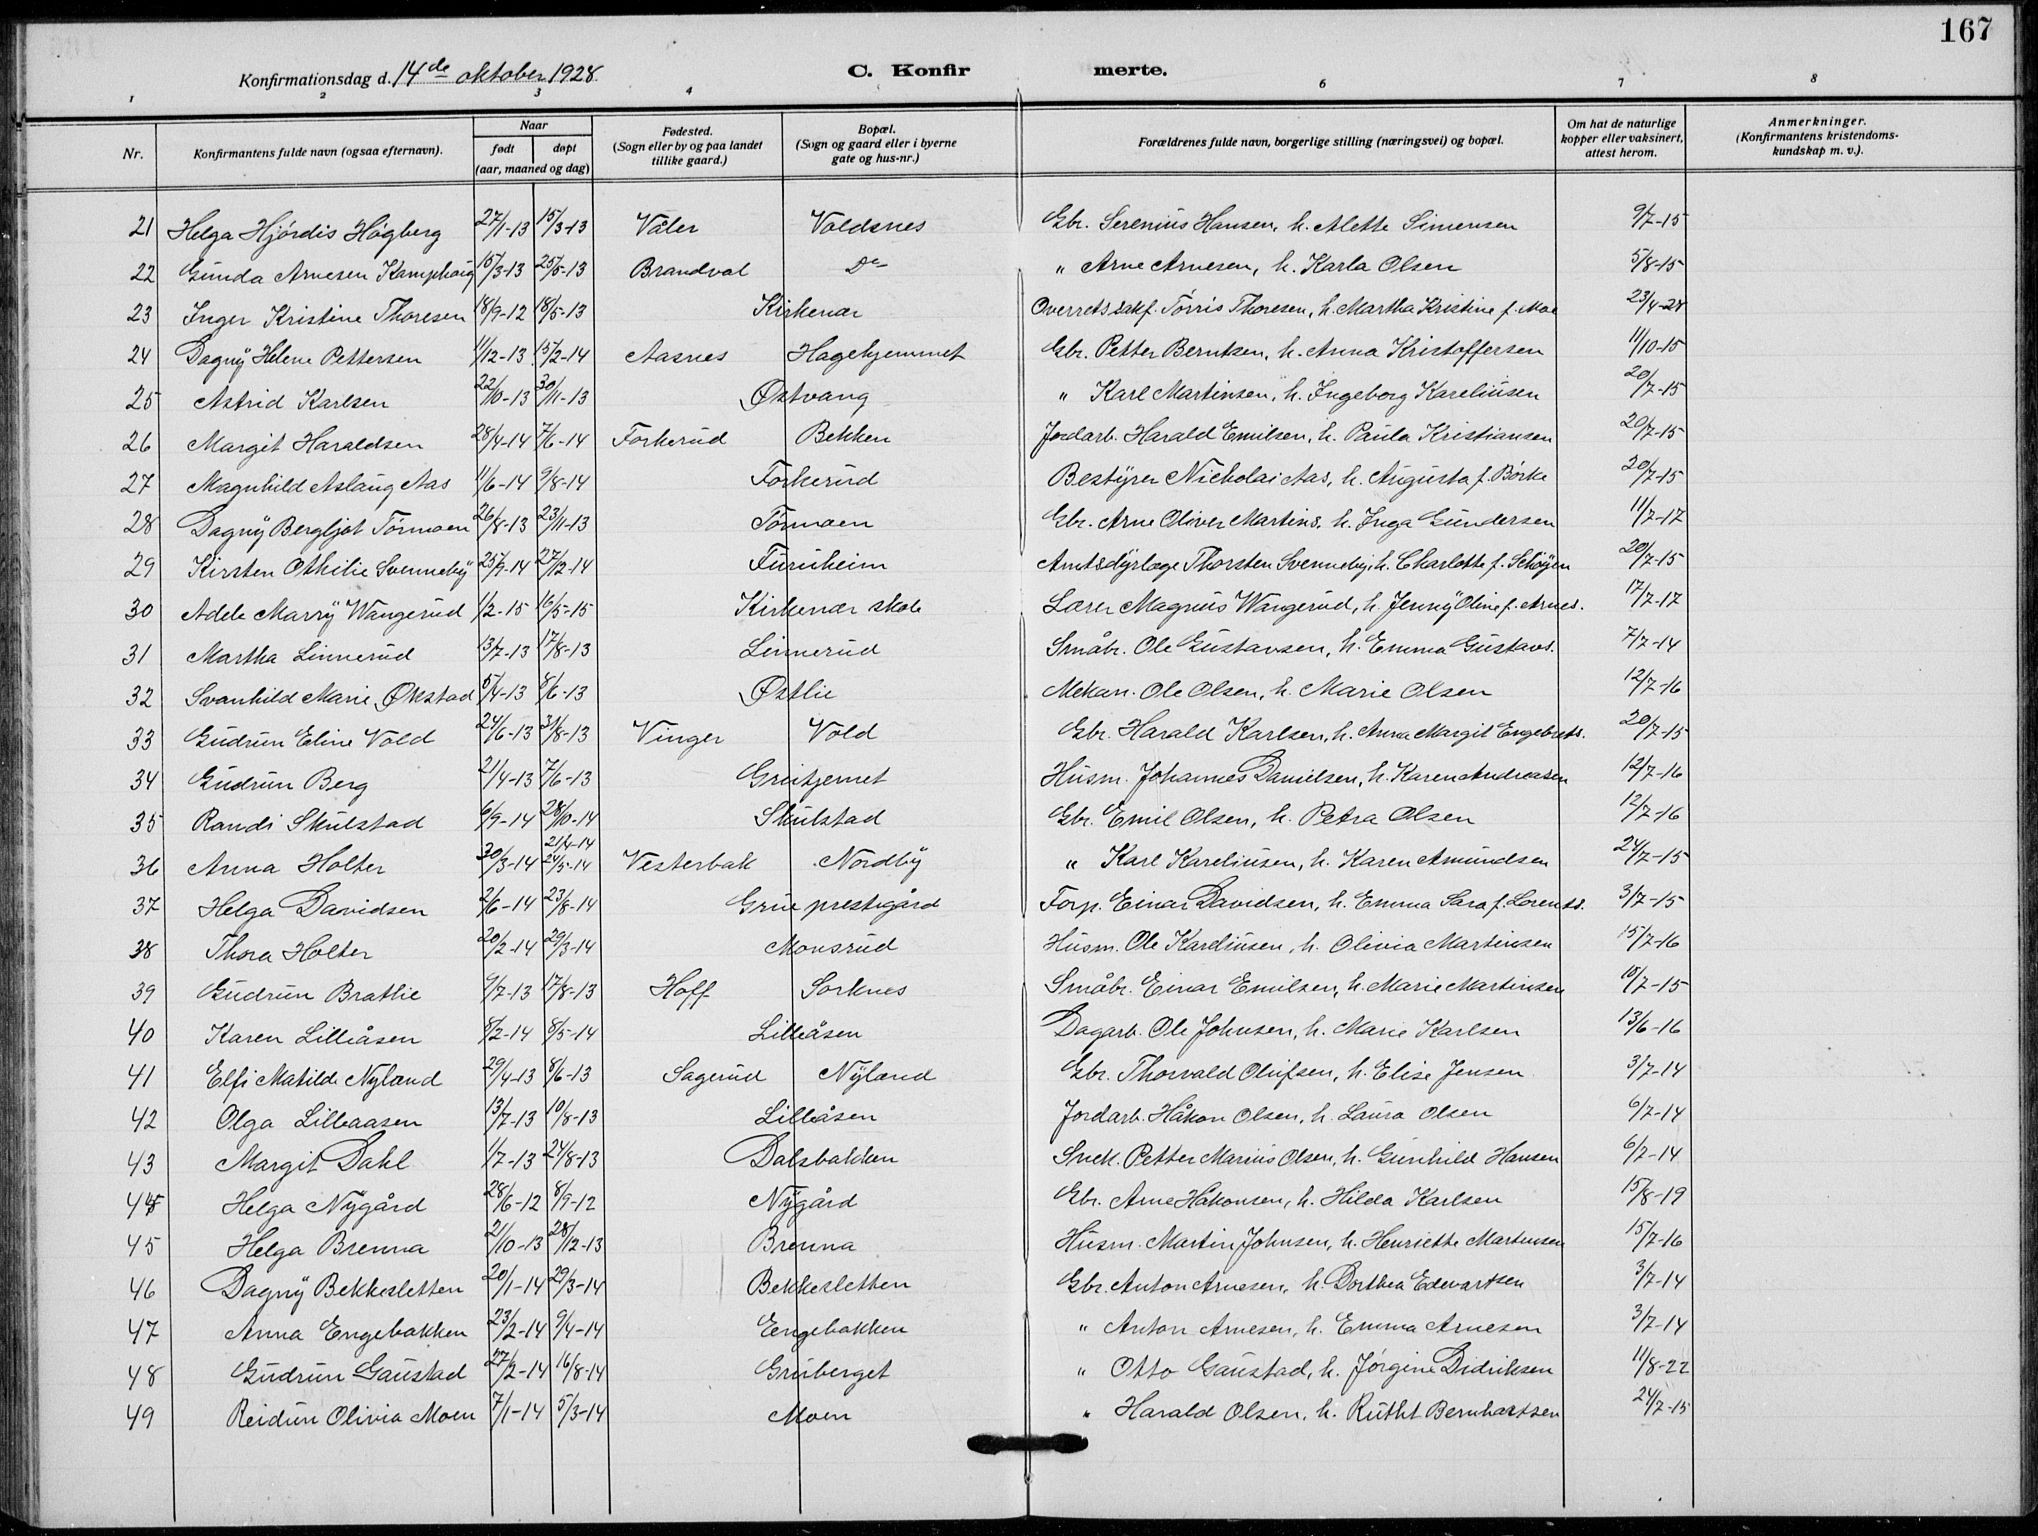 167
Konfirmationsdag d. 14de oktober 1928. C. Konfirmerte.
1 2 3 4 6 7 8
Nr. Konfirmantens fulde navn (ogsaa efternavn). Naar født døpt (aar, maaned og dag) Fødested. (Sogn eller by og paa landet tillike gaard.) Bopæl. (Sogn og gaard eller i byerne gate og hus-nr.) Forældrenes fulde navn, borgerlige stilling (næringsvei) og bopæl. Om hat de naturlige kopper eller vaksinert, attest herom. Anmerkninger. (Konfirmantens kristendoms-kundskap m. v.).
21 Helga Hjørdis Høgberg 27/1-13 15/3-13 Våler Voldsnes Gbr. Serenius Hansen, h. Alette Simensen 9/7-15
22 Gunda Arnesen Kamphaug 15/3-13 25/5-13 Brandval Do " Arne Arnesen, h. Karla Olsen 5/8-15
23 Inger Kristine Thoresen 18/9-12 18/5-13 Kirkenær Overretssakf. Tørris Thoresen, h. Martha Kristine f. Moe 23/4-28
24 Dagny Helene Pettersen 11/12-13 15/2-14 Aasnes Hagehjemmet Gbr. Petter Berntsen, h. Anna Kristoffersen 11/10-15
25 Astrid Karlsen 22/10-13 30/11-13 Østvang " Karl Martinsen, h. Ingeborg Kareliusen 20/7-15
26 Margit Haraldsen 28/4-14 7/6-14 Forkerud Bekken Jordarb. Harald Emilsen, h. Paula Kristiansen 20/7-15
27 Magnhild Aslaug Aas 11/6-14 9/8-14 Forkerud Bestyrer Nicholai Aas, h. Augusta f. Børke 20/7-15
28 Dagny Bergljot Tørmoen 26/8-13 23/11-13 Tørmoen Gbr. Arne Oliver Martins. h. Inga Gundersen 11/7-17
29 Kirsten Othilie Svenneby 25/9-14 27/12-14 Furuheim Amtsdyrlæge Thorsten Svenneby, h. Charlotte f. Schøyen 20/7-15
30 Adele Marry Wangerud 1/2-15 16/5-15 Kirkenær skole Lærer Magnus Wangerud, h. Jenny Oline f. Arnes. 17/7-17
31 Martha Linnerud 13/7-13 17/8-13 Linnerud Småbr. Ole Gustavsen, h. Emma Gustavs. 7/7-14
32 Svanhild Marie Økstad 5/4-13 8/6-13 Østlie Mekan. Ole Olsen, h. Marie Olsen 12/7-16
33 Gudrun Eline Vold 24/6-13 31/8-13 Vinger Vold Gbr. Harald Karlsen, h. Anna Margit Engebrets. 20/7-15
34 Gudrun Berg 21/4-13 7/6-13 Gruetjernet Husm. Johannes Danielsen, h. Karen Andreasen 12/7-16
35 Randi Skulstad 6/9-14 28/10-14 Skulstad Gbr. Emil Olsen, h. Petra Olsen 12/7-16
36 Anna Holter 30/3-14 21/4-14 24/5-14 Vesterbak Nordby " Karl Kareliusen, h. Karen Amundsen 24/7-15
37 Helga Davidsen 2/6-14 23/8-14 Grue prestegård Forp. Einar Davidsen, h. Emma Sara f. Lorents. 3/7-15
38 Thora Holter 20/2-14 29/3-14 Monsrud Husm. Ole Kareliusen, h. Olivia Martinsen 15/7-16
39 Gudrun Bratlie 9/7-13 17/8-13 Hoff Sorknes Småbr. Einar Emilsen, h. Marie Martinsen 10/7-15
40 Karen Lilleåsen 8/2-14 8/5-14 Lilleåsen Dagarb. Ole Johnsen, h. Marie Karlsen 13/6-16
41 Elfi Matilde Nyland 29/4-13 8/6-13 Sagerud Nyland Gbr. Thorvald Olufsen, h. Elise Jensen 3/7-14
42 Olga Lilleaasen 13/7-13 10/8-13 Lilleåsen Jordarb. Håkon Olsen, h. Laura Olsen 6/7-14
43 Margit Dahl 1/7-13 24/8-13 Dalsbakken Snek. Petter Marius Olsen, h. Gunhild Hansen 6/7-14
44 Helga Nygård 28/6-12 8/9-12 Nygård Gbr. Arne Håkonsen, h. Hilda Karlsen 15/8-19
45 Helga Brenna 21/10-13 28/12-13 Brenna Husm. Martin Johnsen, h. Henriette Martinsen 15/7-16
46 Dagny Bekkesletten 20/1-14 29/3-14 Bekkesletten Gbr. Anton Arnesen, h. Dorthea Edevartsen 3/7-14
47 Anna Engebakken 23/2-14 9/4-14 Engebakken " Anton Arnesen, h. Emma Arnesen 3/7-14
48 Gudrun Gaustad 27/2-14 16/8-14 Grueberget " Otto Gaustad, h. Jørgine Didriksen 11/8-22
49 Reidun Olivia Moen 7/1-14 5/3-14 Moen " Harald Olsen, h. Ruth Bernhartsen 24/7-15